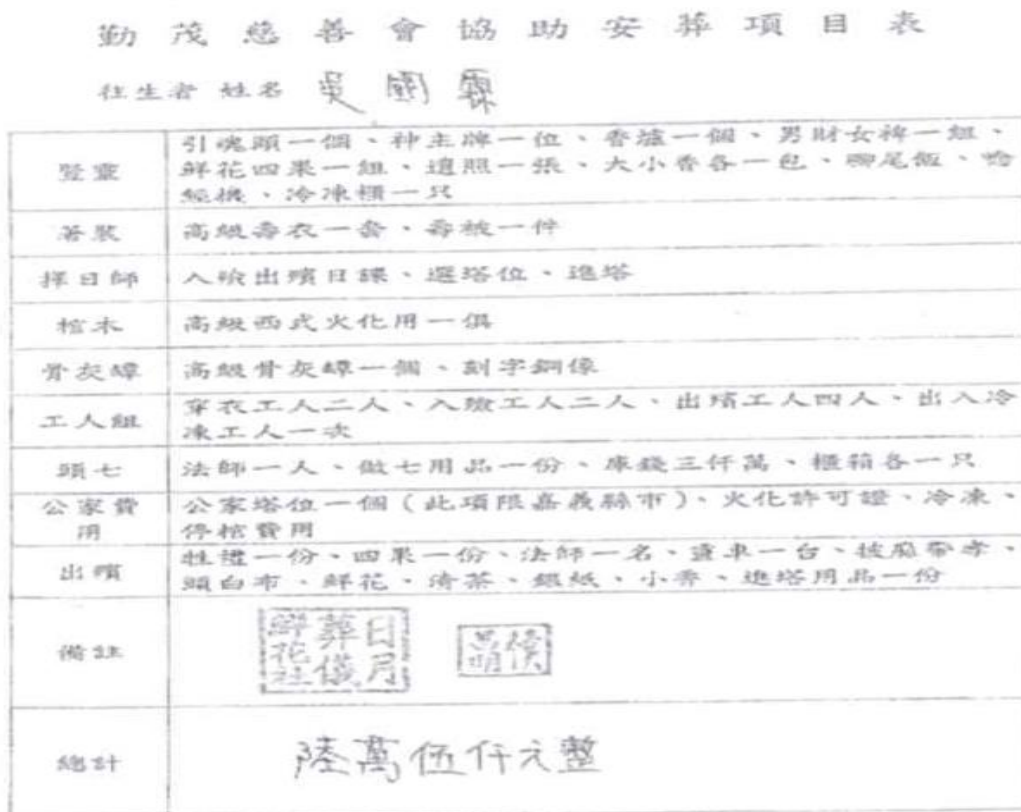 勤茂慈善會協助安葬項目表
往生者 姓名 吳國霖
豎靈 引魂頭一個、神主牌一位、香爐一個、男財女裨一組、
鮮花四果一組、遺照一張、大小香各一包、腳尾飯、唸
經機、冷凍櫃一只
著裝 高級壽衣一套、壽被一件
擇日師 入殮出殯日課、選塔位、進塔
棺木 高級西式火化用一俱
骨灰罈 高級骨灰罈一個、刻字銅像
工人組 穿衣工人二人、入殮工人二人、出殯工人四人、出入冷
凍工人一次
頭七 法師一人、做七用品一份、庫錢三仟萬、櫃箱各一只
公家費用 公家塔位一個(此項限嘉義縣市)、火化許可證、冷凍、
停棺費用
出殯 牲禮一份、四果一份、法師一名、靈車一台、披麻帶孝、
頭白布、鮮花、清茶、銀紙、小香、進塔用品一份
備註 日月葬儀鮮花社
總計 陸萬伍仟元整